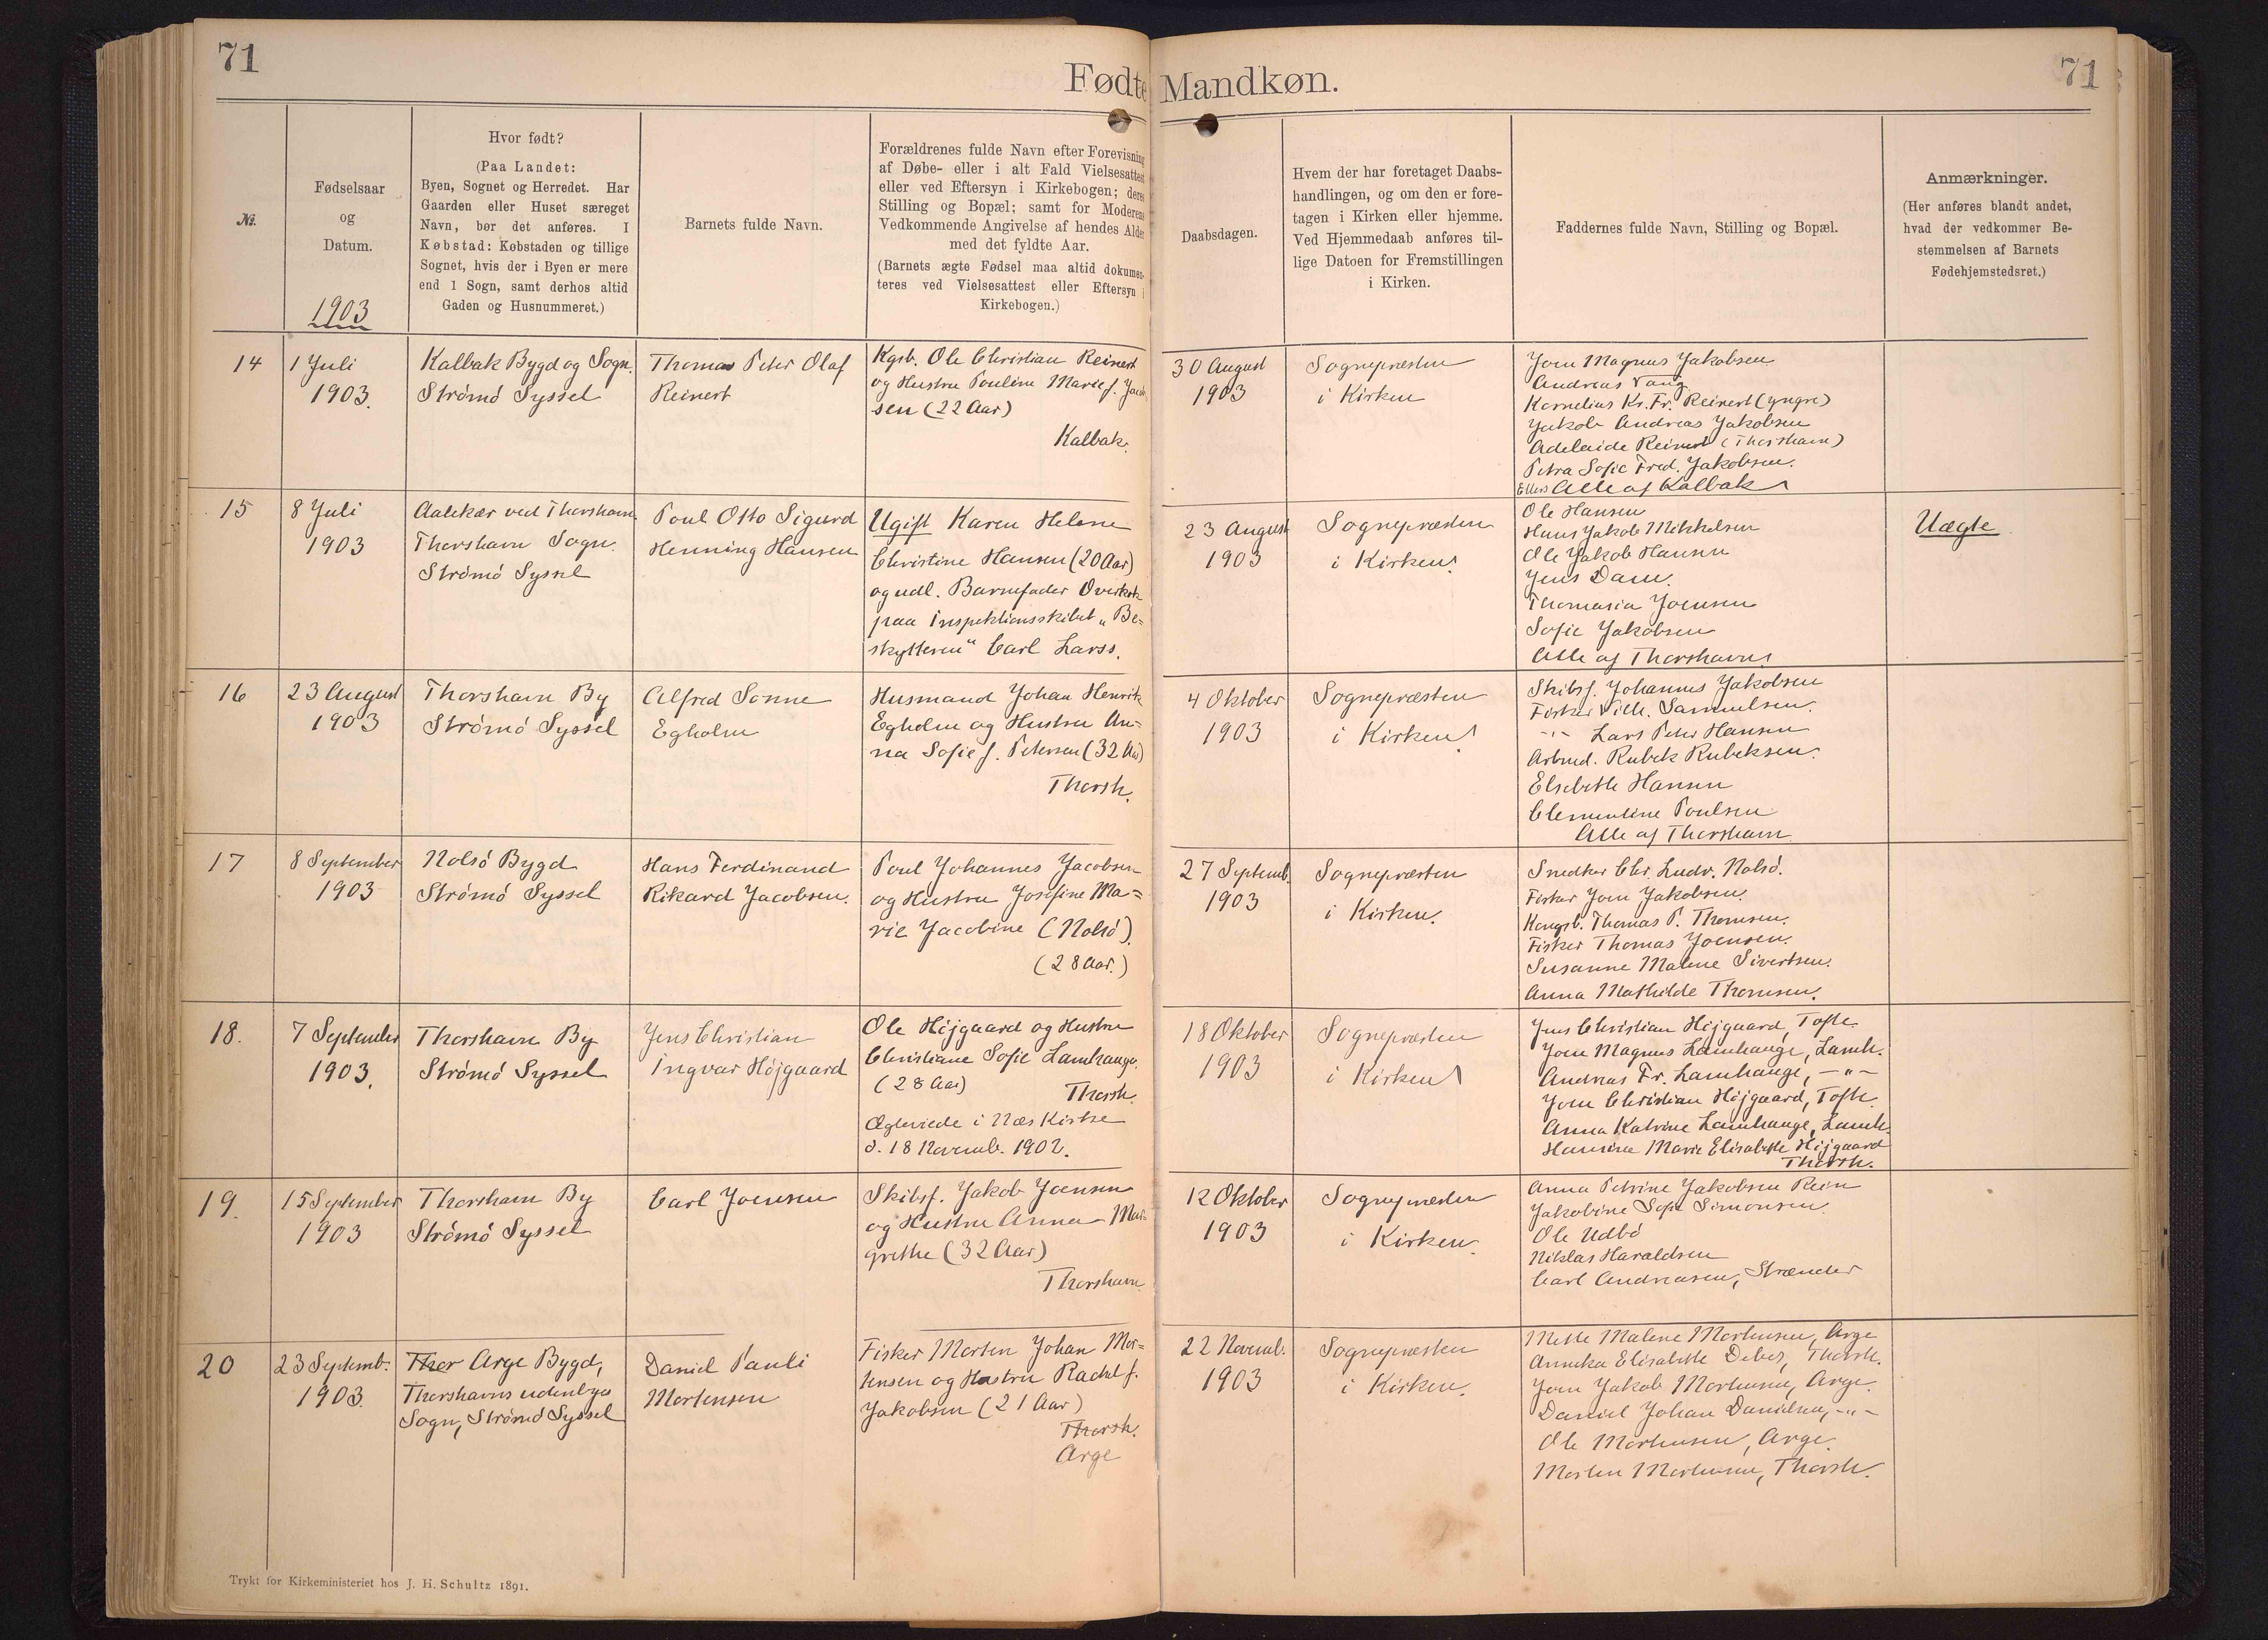 71
71
Fødte Mandkøn.
No.
Fødselsaar
og
Datum.
1903
Hvor født?
(Paa Landet:
Byen, Sognet og Herredet. Har
Gaarden eller Huset særeget
Navn, bør det anføres. I
Købstad: Købstaden og tillige
Sognet, hvis der i Byen er mere
end 1 Sogn, samt derhos altid
Gaden og Husnummeret.)
Barnets fulde Navn.
Forældrenes fulde Navn efter Forevisning
af Døbe- eller i alt Fald Vielsesattest
eller ved Eftersyn i Kirkebogen; deres
Stilling og Bopæl; samt for Moderens
Vedkommende Angivelse af hendes Alder
med det fyldte Aar.
(Barnets ægte Fødsel maa altid dokumen-
teres ved Vielsesattest eller Eftersyn i
Kirkebogen.)
Daabsdagen.
Hvem der har foretaget Daabs-
handlingen, og om den er fore-
tagen i Kirken eller hjemme.
Ved Hjemmedaab anføres til-
lige Datoen for Fremstillingen
i Kirken.
Faddernes fulde Navn, Stilling og Bopæl.
Anmærkninger.
(Her anføres blandt andet,
hvad der vedkommer Be-
stemmelsen af Barnets
Fødehjemstedsret.)
14
1 Juli
1903.
Kalbak Bygd og Sogn.
Strømø Syssel
Thomas Peter Olaf
Reinert
Kgsb. Ole Christian Reinert
og Hustru Pouline Marie f. Jacob
sen (22 Aar)
Kalbak.
30 August
1903
Sognepræsten
i Kirken
Joen Magnus Jakobsen
Andreas Vang
Kornelius Kr. Fr. Reinert (yngre)
Jakob Andreas Jakobsen
Adelaide Reinert (Thorshavn)
Petra Sofie Fred. Jakobsen.
Ellers Alle af Kalbak
15
8 Juli
1903
Aalekær ved Thorshavn.
Thorshavn Sogn.
Strømø Syssel
Poul Otto Sigurd
Henning Hansen
Ugift Karen Helene
Christine Hansen (20 Aar)
og udl. Barnefader Overkok
paa Inspektionsskibet „Be=
skytteren" Carl Larss.
23 August
1903
Sognepræsten
i Kirken.
Ole Hansen
Hans Jakob Mikkelsen
Ole Jakob Hansen
Jens Dam.
Thomasia Joensen
Sofie Jakobsen
Alle af Thorshavn
Uægte
16
23 August
1903
Thorshavn By
Strømø Syssel
Alfred Sonne
Egholm
Husmand Johan Henrik
Egholm og Hustru An=
na Sofie f. Petersen (32 Aar)
Thorsh.
4 Oktober
1903
Sognepræsten
i Kirken
Skibsf. Johannes Jakobsen
Fisker Vilh. Samuelsen.
-"- Lars Peter Hansen
Arbmd. Rubek Rubeksen.
Elsebeth Hansen
Clementine Poulsen
Alle af Thorshavn
17
8 September
1903
Nolsø Bygd
Strømø Syssel
Hans Ferdinand
Rikard Jacobsen.
Poul Johannes Jacobsen
og Hustru Josefine Ma=
rie Jacobine (Nolsø).
(28 Aar.)
27 Septemb.
1903
Sognepræsten
i Kirken.
Snedker Chr. Ludv. Nolsø.
Fisker Joen Jakobsen.
Kongsb. Thomas P. Thomsen.
Fisker Thomas Joensen.
Susanne Malene Sivertsen.
Anna Mathilde Thomsen.
18.
7 September
1903.
Thorshavn By
Strømø Syssel
Jens Christian
Ingvar Højgaard
Ole Højgaard og Hustru
Christiane Sofie Lamhauge.
(28 Aar)
Thorsh.
Ægteviede i Næs Kirke
d. 18 Novemb. 1902.
18 Oktober
1903
Sognepræsten
i Kirken
Jens Christian Højgaard, Tofte.
Joen Magnus Lamhauge, Lamh.
Andreas Fr. Lamhauge, -"-
Joen Christian Højgaard, Tofte.
Anna Katrine Lamhauge, Lamh.
Hansina Marie Elisabeth Højgaard
Thorsh.
19.
15 September
1903
Thorshavn By
Strømø Syssel
Carl Joensen
Skibsf. Jakob Joensen
og Hustru Anna Mar=
grethe (32 Aar)
Thorshavn
12 Oktober
1903
Sognepræsten
i Kirken.
Anna Petrine Jakobsen Rein
Jakobine Sofie Simonsen.
Ole Udbø
Niklas Haraldsen
Carl Andreasen, Strænder
20
23 Septemb.
1903.
Thor Arge Bygd,
Thorshavns udenbys
Sogn, Strømø Syssel
Daniel Pauli
Mortensen
Fisker Morten Johan Mor=
tensen og Hustru Rachel f.
Jakobsen (21 Aar)
Thorsh.
Arge
22 Novemb.
1903
Sognepræsten
i Kirken.
Mette Malene Mortensen, Arge
Annika Elisabeth Debes, Thorsh.
Joen Jakob Mortensen, Arge.
Daniel Johan Danielsen, -"-
Ole Mortensen, Arge.
Morten Mortensen, Thorsh.
Trykt for Kirkeministeriet hos J. H. Schultz 1891.